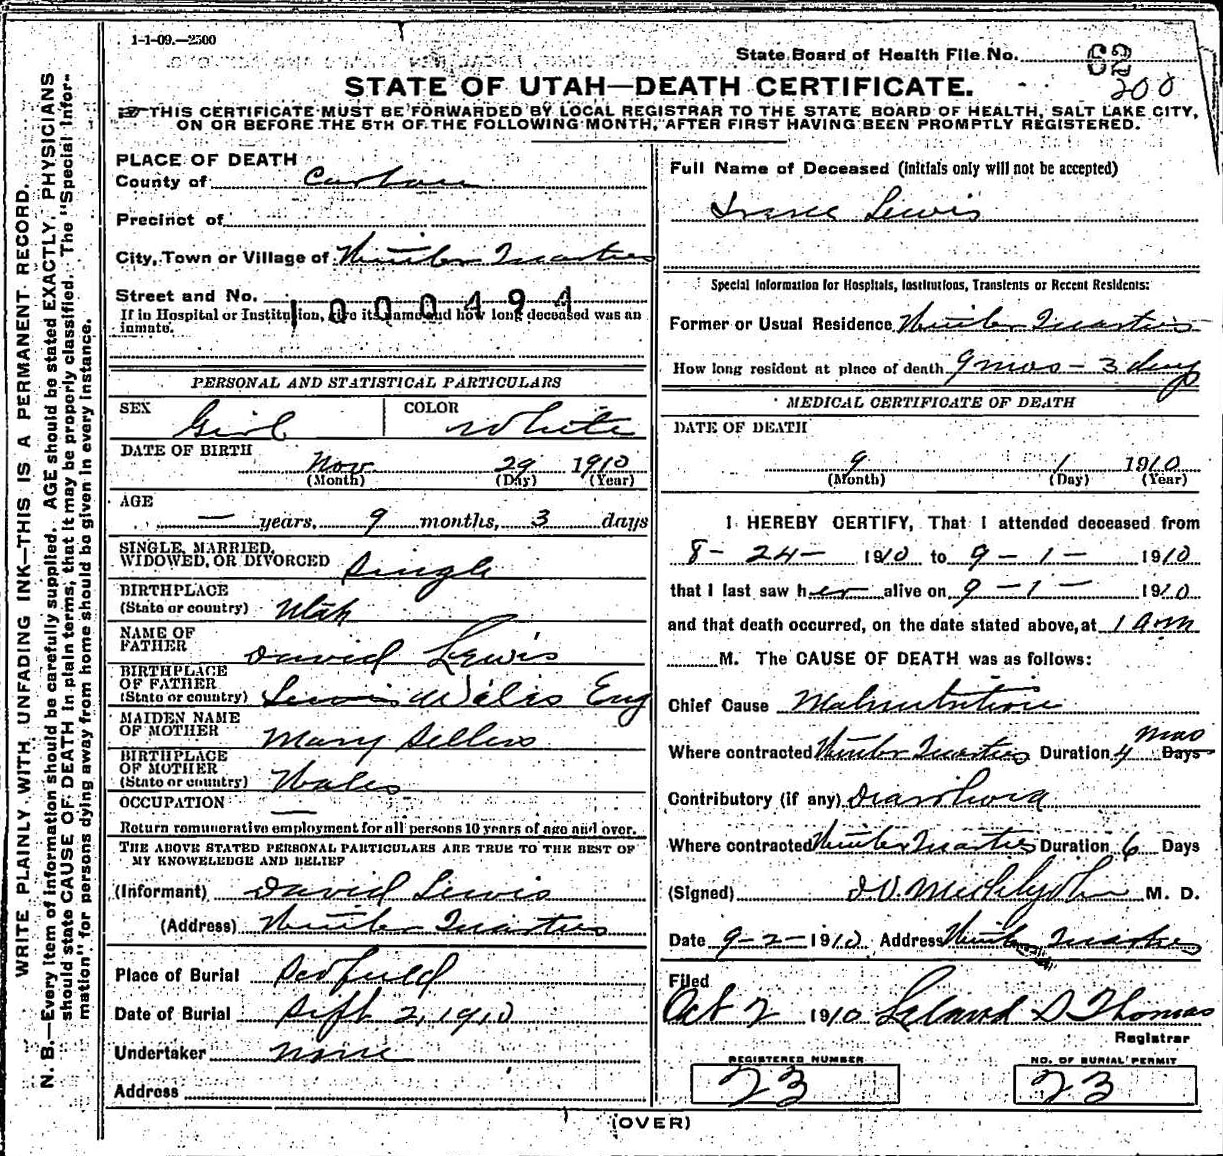 1-1-09.—2500
State Board of Health File No. 62
200
STATE OF UTAH—DEATH CERTIFICATE.
THIS CERTIFICATE MUST BE FORWARDED BY LOCAL REGISTRAR TO THE STATE BOARD OF HEALTH, SALT LAKE CITY,
ON OR BEFORE THE 5TH OF THE FOLLOWING MONTH, AFTER FIRST HAVING BEEN PROMPTLY REGISTERED.
WRITE PLAINLY WITH UNFADING INK—THIS IS A PERMANENT RECORD.
N. B.—Every item of information should be carefully supplied. AGE should be stated EXACTLY, PHYSICIANS
should state CAUSE OF DEATH in plain terms, that it may be properly classified. The "Special Infor-
mation" for persons dying away from home should be given in every instance.
PLACE OF DEATH
County of Carbon
Precinct of
City, Town or Village of Winter Quarters
Street and No.
1000494
If in Hospital or Institution, give its name and how long deceased was an
inmate.
PERSONAL AND STATISTICAL PARTICULARS
SEX Girl COLOR White
DATE OF BIRTH
Nov 29 1910
(Month) (Day) (Year)
AGE
— years, 9 months, 3 days
SINGLE, MARRIED,
WIDOWED, OR DIVORCED Single
BIRTHPLACE
(State or country) Utah
NAME OF
FATHER David Lewis
BIRTHPLACE
OF FATHER
(State or country) Wales Eng
MAIDEN NAME
OF MOTHER Mary Sellers
BIRTHPLACE
OF MOTHER
(State or country) Wales
OCCUPATION —
Return remunerative employment for all persons 10 years of age and over.
THE ABOVE STATED PERSONAL PARTICULARS ARE TRUE TO THE BEST OF
MY KNOWELEDGE AND BELIEF
(Informant) David Lewis
(Address) Winter Quarters
Place of Burial Scofield
Date of Burial Sept 2, 1910
Undertaker None
Address
Full Name of Deceased (initials only will not be accepted)
Lewis
Special Information for Hospitals, Institutions, Transients or Recent Residents:
Former or Usual Residence Winter Quarters
How long resident at place of death 9 mos - 3 days
MEDICAL CERTIFICATE OF DEATH
DATE OF DEATH
9 1 1910
(Month) (Day) (Year)
I HEREBY CERTIFY, That I attended deceased from
8 - 24 - 1910 to 9 - 1 - 1910
that I last saw her alive on 9 - 1 - 1910
and that death occurred, on the date stated above, at 1 am
M. The CAUSE OF DEATH was as follows:
Chief Cause Malnutrition
mos
Where contracted Winter Quarters Duration 4 Days
Contributory (if any) Diarrhoea
Where contracted Winter Quarters Duration 6 Days
(Signed) M. D.
Date 9-2-1910 Address Winter Quarters
Filed
Oct 2 1910 Leland D Thomas
Registrar
REGISTERED NUMBER
23
NO. OF BURIAL PERMIT
23
(OVER)